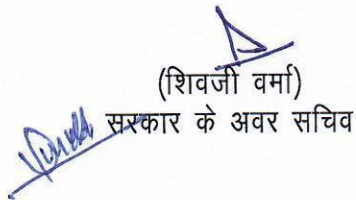 (शिवजी वर्मा)
सरकार के अवर सचिव